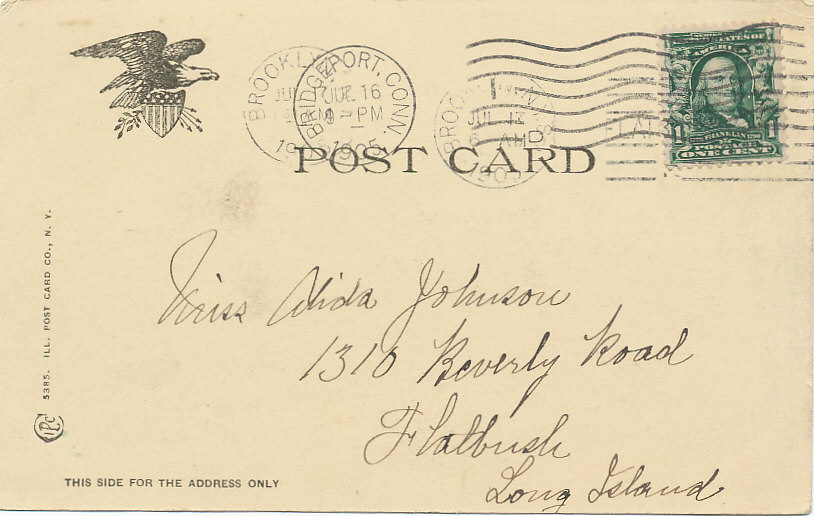 BROOKLYN
BRIDGEPORT, CONN.
JUL 16
9-PM
1905
BROOKLYN, N.Y.
JUL 17
AM
1905
FLATB
UNITED STATES OF
AMERICA
FRANKLIN
1
POSTAGE
ONE CENT
POST CARD
Miss Alida Johnson
1310 Beverly Road
Flatbush
Long Island
5385. ILL. POST CARD CO., N. Y.
IPC
THIS SIDE FOR THE ADDRESS ONLY